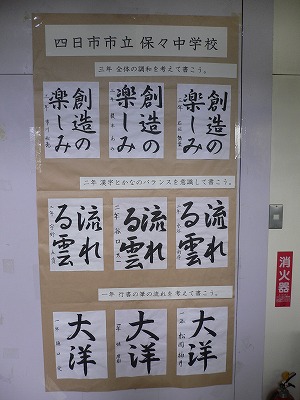 四日市市立 保々中学校
三年 全体の調和を考えて書こう。
創造の
楽しみ
創造の
楽しみ
創造の
楽しみ
二年 漢字とかなのバランスを意識して書こう。
流れ
る雲
流れ
る雲
流れ
る雲
一年 行書の筆の流れを考えて書こう。
大洋
大洋
大洋
消火器